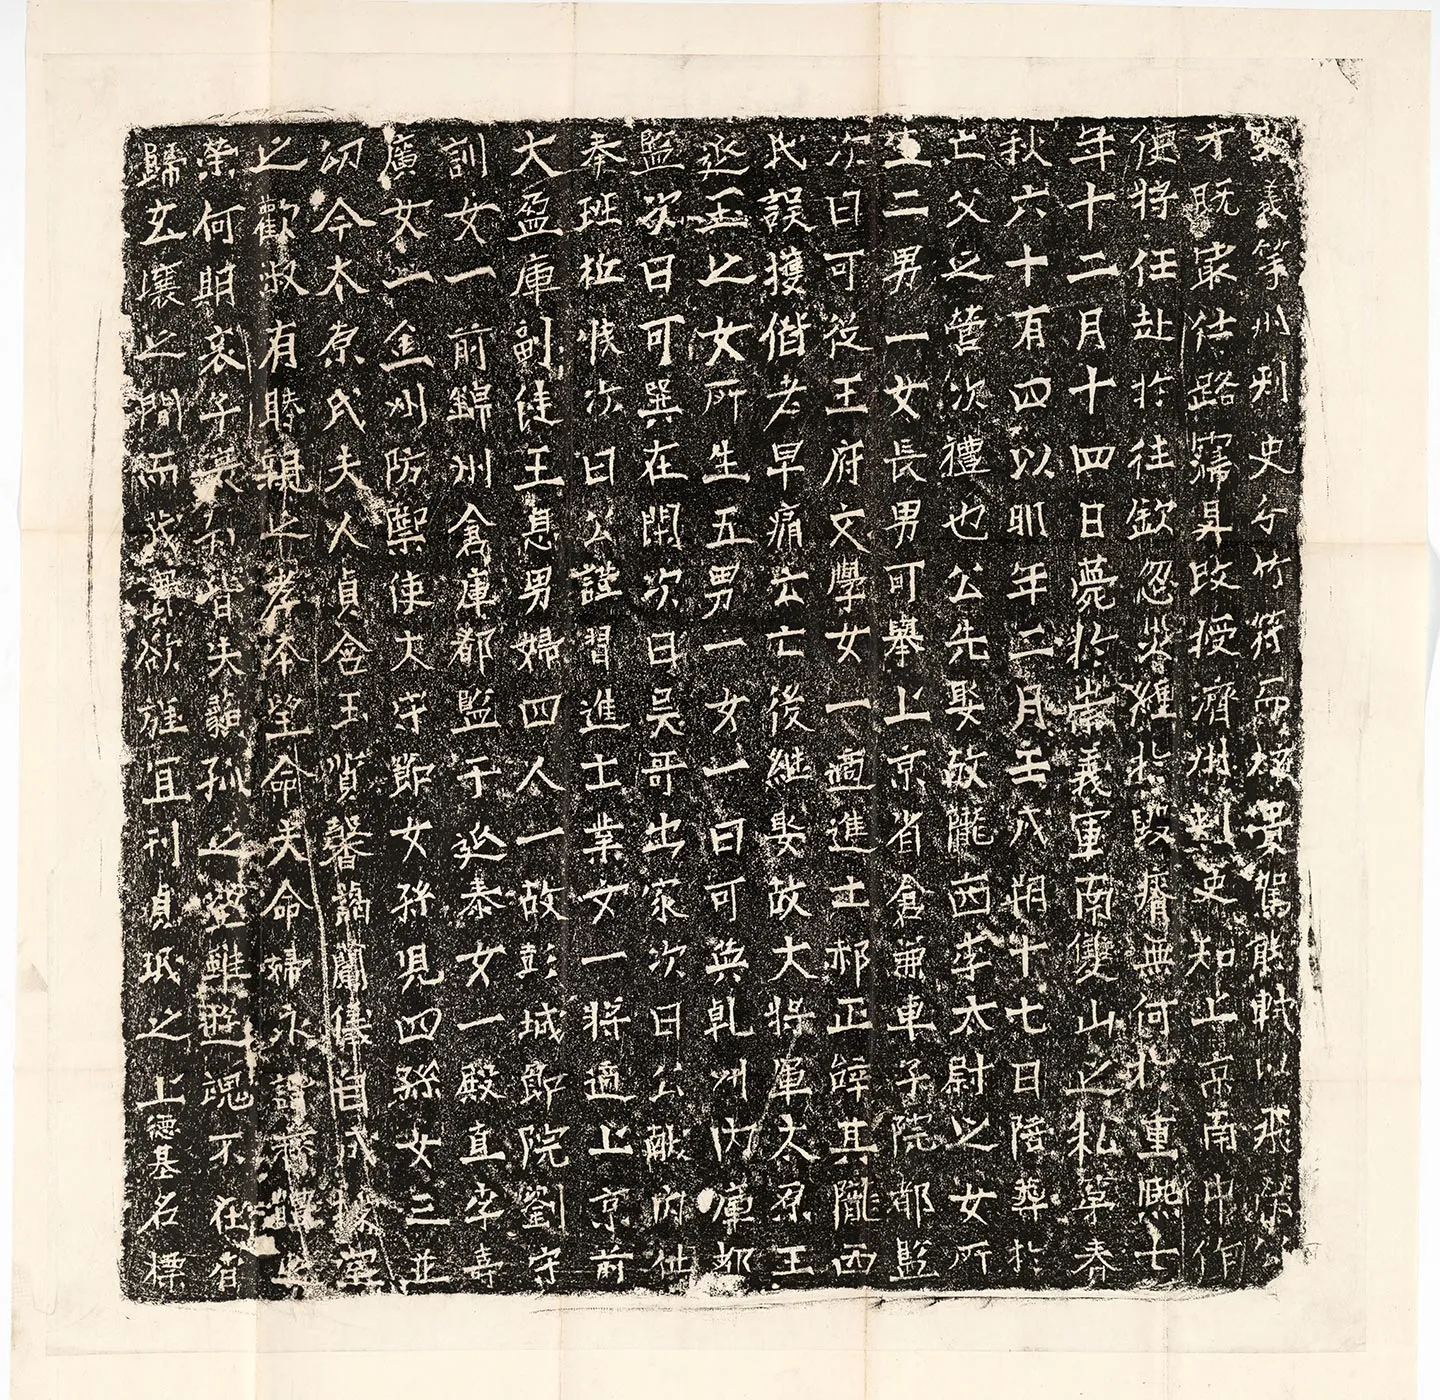 義等州刾史分竹符而 貴駕熊軾以飛
才既㝡仕路 昇改授濟州刾史知上京南中作
使將任赴扵往欽忽 無何扵重熈七
年十二月十四日薨扵崇義軍南雙山之私第春
秋六十有四以卯年二月壬戌朔十七日陪葬扵
亡父之營次禮也公先娶故隴西李太尉之女所
生二男一女長男可舉上京省倉兼車子院都監
次曰可從王府文學女一適進士郝正辞其隴西
氏誤獲偕老早痛云亡後継娶故大將軍太原王
延玉之女所生五男一女一曰可奐乹州內庫都
監次曰可巽在閑次曰吳哥出家次曰公献內仕
奉班祗候次曰公謹習進士業女一將適上京前
大盈庫副使王息男婦四人一故彭城節院劉守
訓女一前錦州倉庫都監于延泰女一殿直李壽
廣女一金州防禦使大守節女孫児四孫女三並
㓜今太原氏夫人貞含玉質馨藹蘭儀自
之歡叔有睦親之孝本望命夫命婦永
榮何期哀子 昔失 孤之 雖 魂不在省
歸玄壤之間而 欲旌且刊貞珉之上德基名標